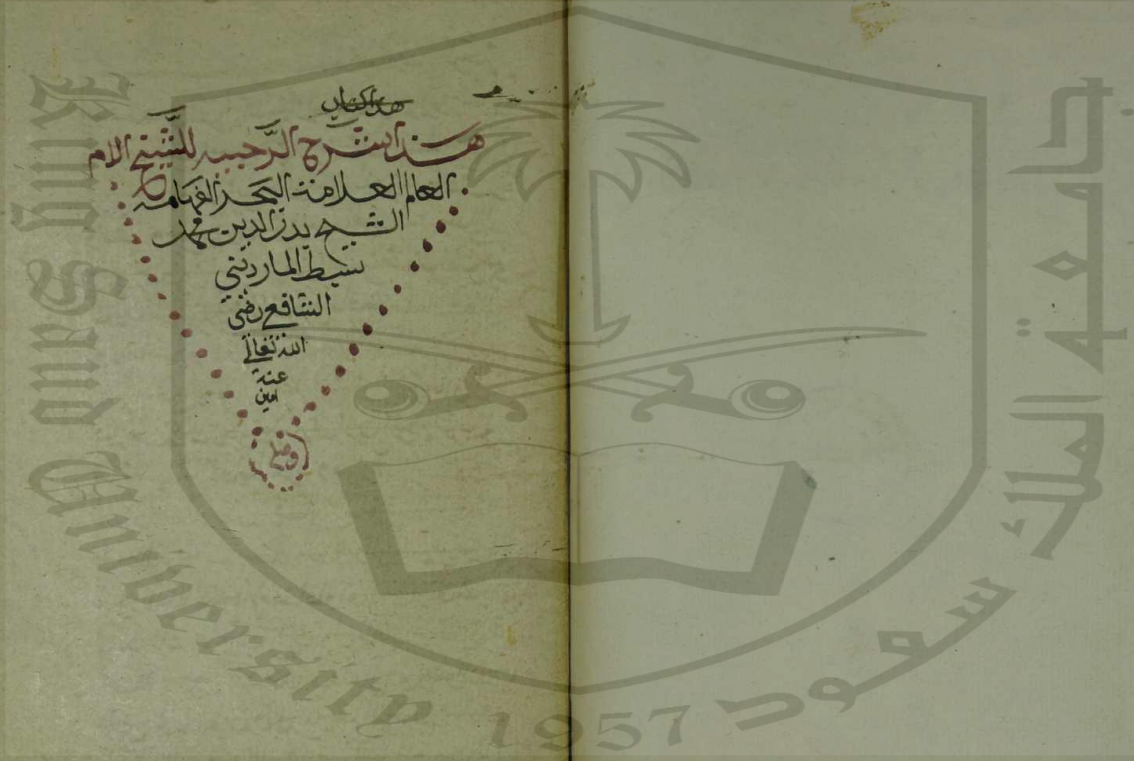 هذا كتاب
هذا شرح الرحبيه للشيخ الامام
العالم العلامة البحر الفهامه
الشيخ بدر الدين محمد
سبط المارديني
الشافعي رضي
الله تعالى
عنه
امين
King Saud University
1957
جامعة الملك سعود